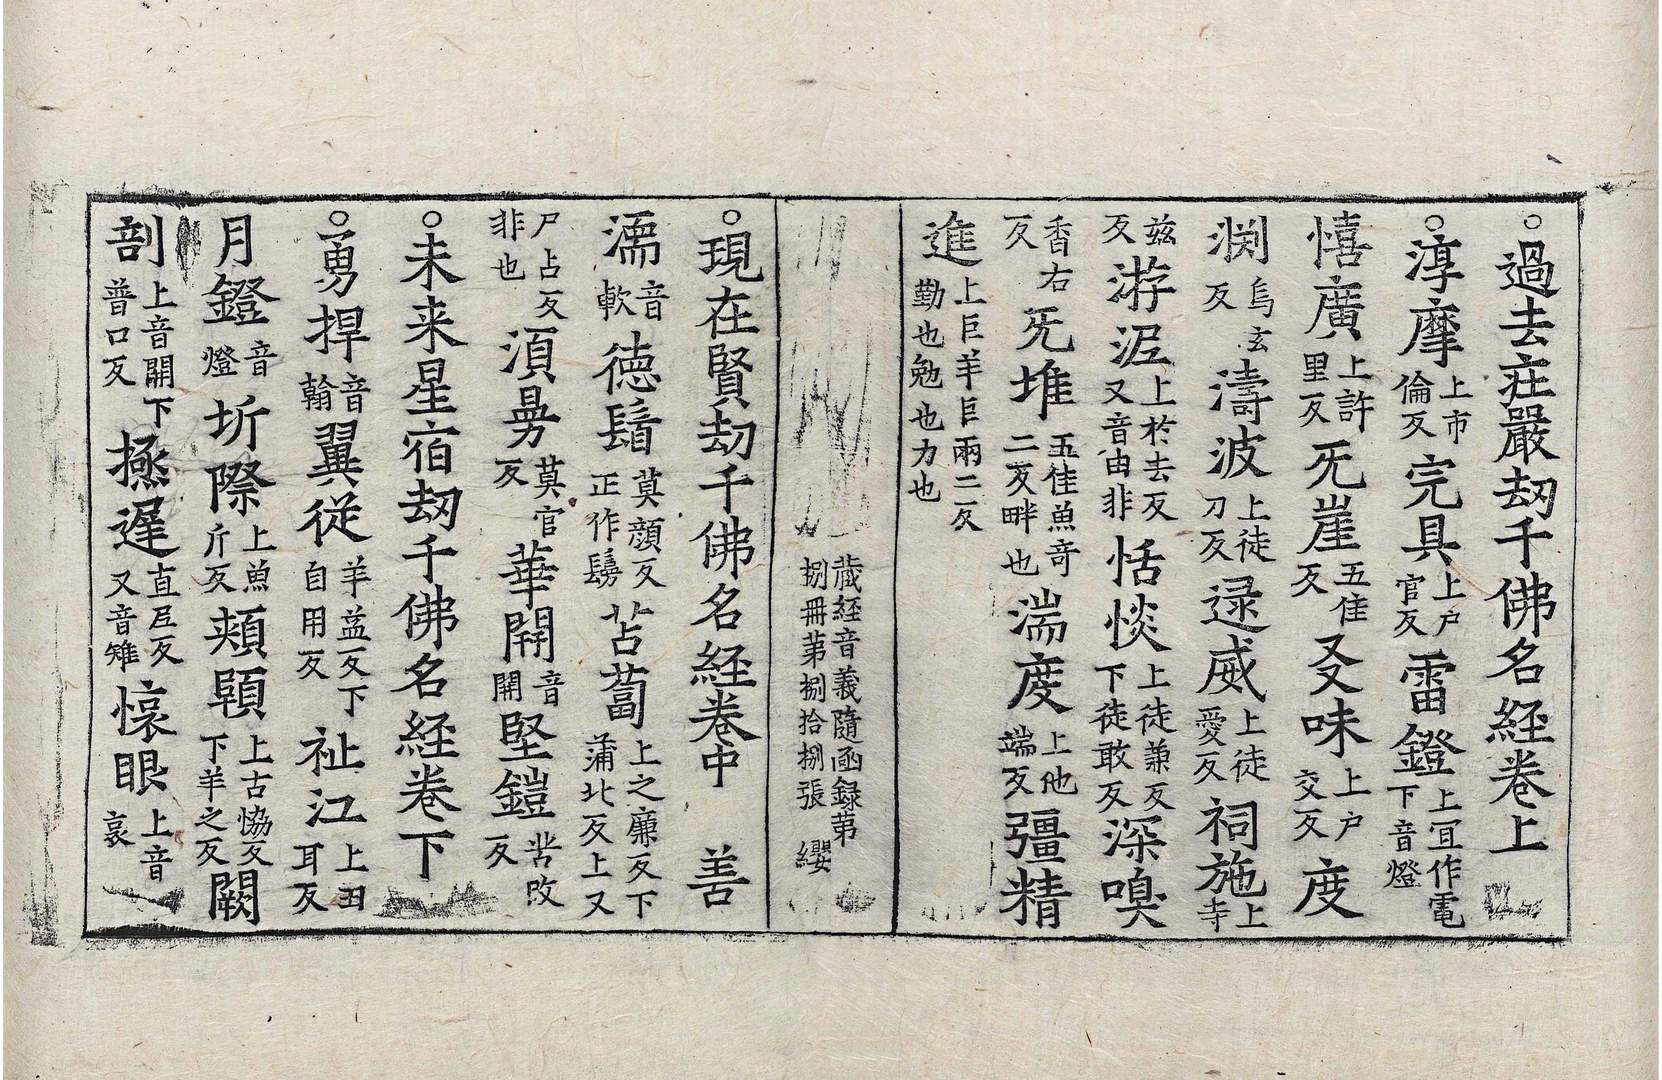 ○過去莊嚴刼千佛名経卷上
○淳摩上市倫反完具上户官反雷鐙上冝作電下音燈
憘廣上許里反旡崖五佳反㕛味上户交反度
渕烏玄反濤波上徒刀反逯威上徒愛反祠施上寺
兹反游泥上於去反又音由非恬惔上徒兼反下徒敢反深嗅
香右反旡堆五佳魚竒二反畔也湍度上他端反彊精
進上巨羊巨兩二反勤也勉也力也
蔵経音義隨函録苐捌冊苐捌拾捌張 纓
○現在賢刼千佛名経卷中 善
濡音軟徳鬙莫顔反正作鬘苫蔔上之廉反下蒲北反上又
尸占反非也湏㬅莫官反華開音開堅鎧苦改反
○未来星宿刼千佛名経卷下
○勇捍音翰翼従羊益反下自用反祉江上丑耳反
月鐙音燈圻際上魚斤反頬顊上古恊反下羊之反闕
剖上音開下普口反拯遲直尼反又音雉懐眼上音哀